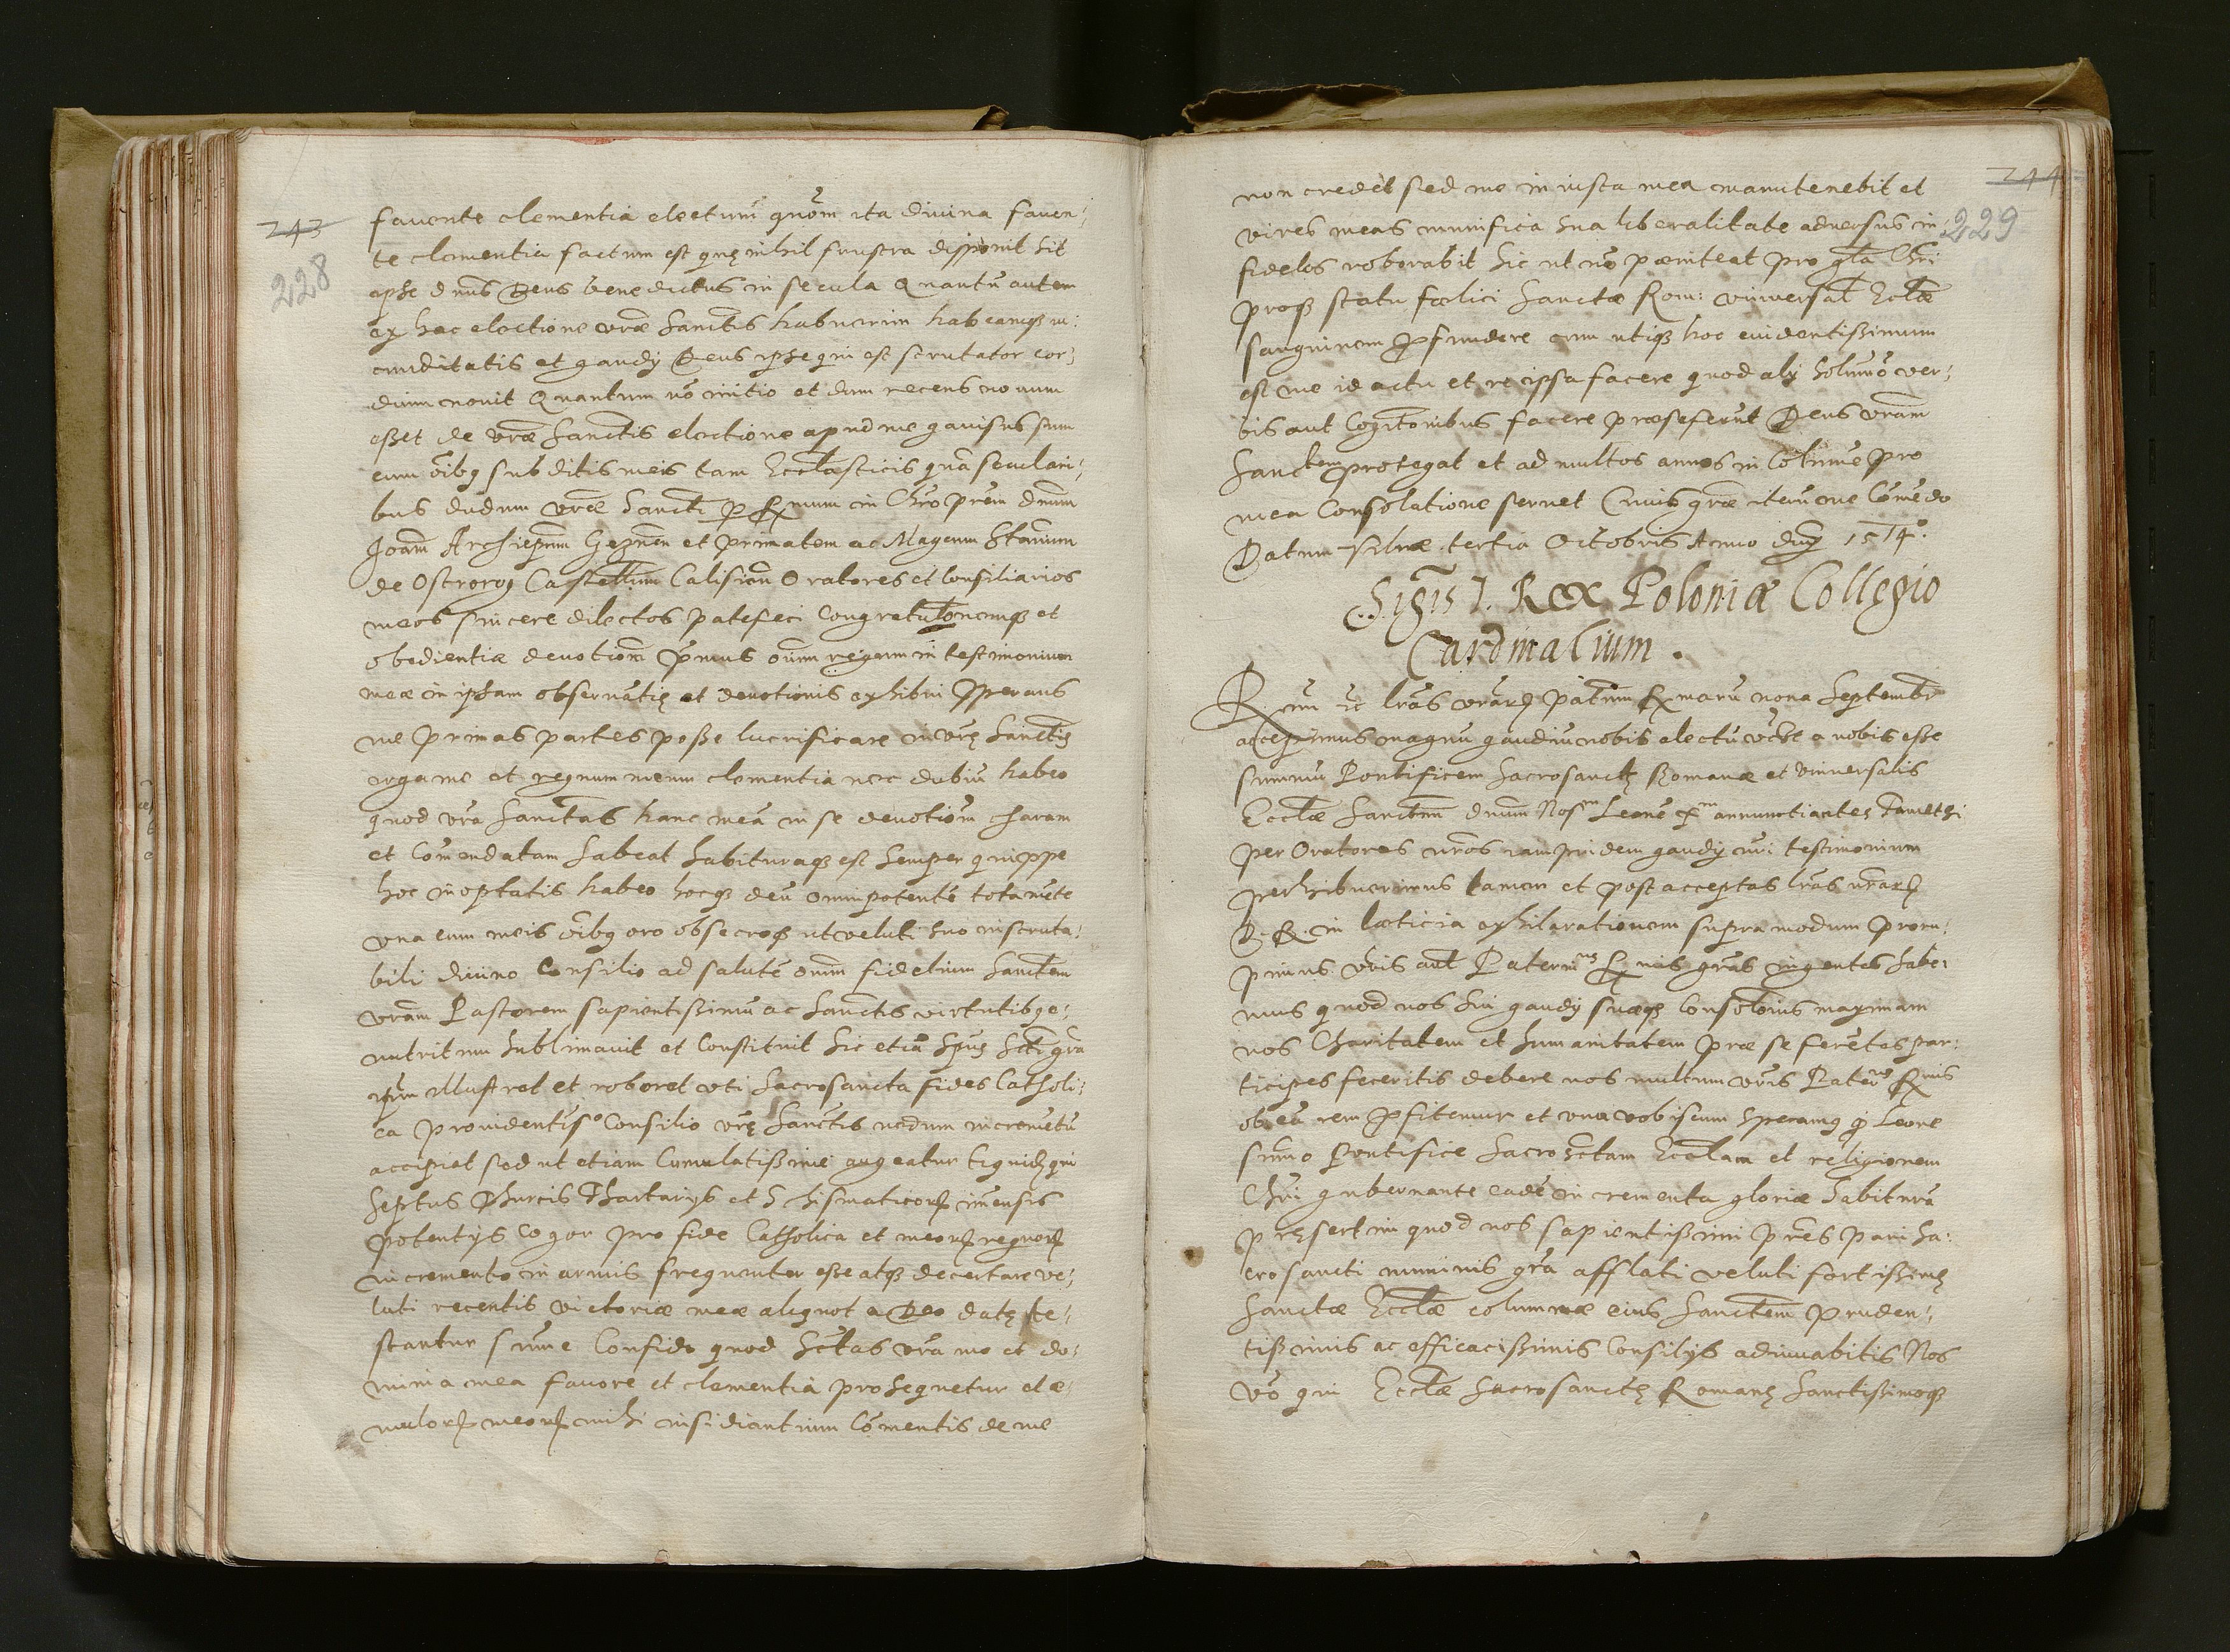 243
228
fauente clementia electum quom̃ ita diuina fauen-
te clementia factum est quę nihil frustra disponit sit
ipse dnus Deus benedictus in secula Quantũ autem
ex hac electione vrae Sanctis habuerim habeamq; iu-
cunditatis et gaudy Deus ipse qui est scrutator cor-
dium nouit Quantum vo initio et dum recens nouum
esset de vrae Sanctis electione apud me gauisus sum
cum oibq subditis meis tam Ecclasticis qua seculari-
bus dudum vrae Sancti p Rmum in Chro prem dnum
Joam Archiepum Geznen et primatem ac Magcum Stanium
de Ostrorog Castellum Calisien Oratores et Consiliarios
meos sincere dilectos patefeci Congratulonemq; et
obedientiæ deuotiom primus oium regum in testimonium
meæ in ipsam obseruatię et deuotionis exhibui sperans
me primas partes posse lucrificare in vrę Sanctis
erga me et regnum meum clementia nec dubiũ habeo
quod vra Sanctas hanc meã in se deuotiom charam
et Comendatam habeat habituraq; est semper quippe
hoc in optatis habeo hocq; deũ omnipotentẽ tota mẽte
vna cum meis oibq oro obsecroq; ut veluti suo inscruta-
bili diuino Consilio ad salutẽ oium fidelium Sanctem
vram Pastorem sapientissimũ ac Sanctis virtutibq e-
nutritum sublimauit et Constituit sic etiã Spus Scti gra
ipsum illustret et roboret vti Sacrosancta fides Catholi-
ca prouidentiso Consilio vrę Sanctis nedum incremẽtũ
accipiat sed ut etiam Cumulatissime augeatur Ego qui
septus Thurcis Thartarijs et Schismaticor imensis
potentijs Cogor pro fide Catholica et meor regnor
incremento in armis frequenter esse atq; decertare ve-
luti recentis victoriæ meæ aliquot a Deo datę te-
stantur sume Confido quod Sctas vra me et do-
minia mea fauore et clementia prosequetur et æ-
mulor meor mihi insidiantium Comentis de me
244
229
non credet sed me in iusta mea manutenebit et
vires meas munifica sua liberalitate aduersus in-
fideles roborabit sic ut no pœniteat pro gla Chri
proq; statu fœlici Sanctæ Rom: vniuersal Ectae
sanguinem pfundere cum utiq; hoc euidentissimum
est me id actu et re ipsa facere quod alij solumo ver-
bis aut Cogitonibus facere præseferut Deus vram
Sanctem protegat et ad multos annos in Cotinue pro
mea Consolatione seruet Cuius grae iteru me Comedo
Datum Vilnæ tertia Octobris Anno dni 1514.
Sigis I. Rex Poloniæ Collegio
Cardinalium.
lras vrar Patrum Rmaru nona Septembr
accepimus magnu gaudiu nobis electu a nobis esse
summu Pontificem Sacrosanctę Romanæ et Vniuersalis
Ecclæ Sanctum dnum Nosm Leonẽ Xm annunctiantes tametsi
per Oratores nros iampridem gaudij nri testimonium
perhibuerimus tamen et post acceptas lras vrar
P. R. in læticia exhilarationem supra modum proru-
pimus vris aut Paternus Rmis gras ingentes habe-
mus quod nos sui gaudij suæq; Consolonis maximam
nos Charitatem et humanitatem præ se ferẽtes par-
ticipes feceritis debere nos multum vris Patern Rmis
ob eã rem pfitemur et vna vobiscum speramq q Leone
sumo Pontifice Sacrosctam Ecclam et religionem
Chri gubernante eade incrementa gloriæ habitura
pręsertim quod nos sapientissimi pres pari Sa-
crosancti numinis gra afflati veluti fortissimę
Sanctæ Ecclæ columnæ eius Sanctem pruden-
tissimis ac efficacissimis Consilijs adiuuabitis Nos
vo qui Ecclæ Sacrosanctę Romanę Sanctissimoq;